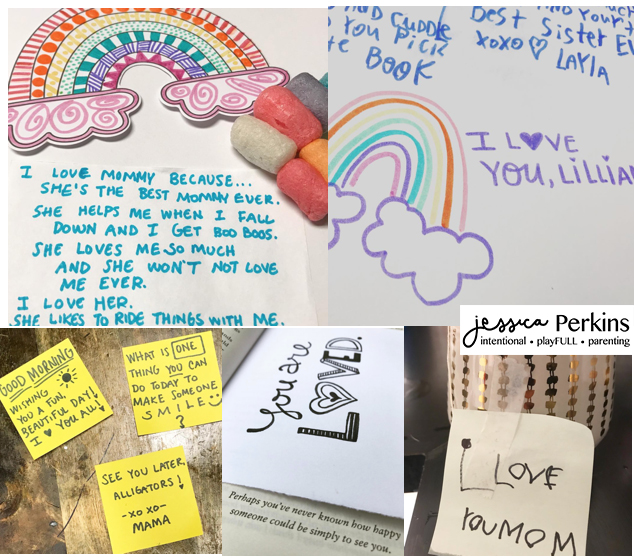 I LOVE MOMMY BECAUSE...
SHE'S THE BEST MOMMY EVER.
SHE HELPS ME WHEN I FALL
DOWN AND I GET BOO BOOS.
SHE LOVES ME SO MUCH
AND SHE WON'T NOT LOVE
ME EVER.
I LOVE HER.
SHE LIKES TO RIDE THINGS WITH ME.
CUDDLE
YOU PICK
BOOK
BEST SISTER
XOXO ♡ LAYLA
I L♥VE
YOU, LILLIA
jessica Perkins
intentional • playFULL • parenting
GOOD MORNING
WISHING
YOU A FUN,
BEAUTIFUL DAY!
I ♥ YOU ALL!
WHAT IS ONE
THING YOU CAN
DO TODAY TO
MAKE SOMEONE
SMILE
?
SEE YOU LATER,
ALLIGATORS!
-XOXO-
MAMA
you are
LOVED.
Perhaps you've never known how happy
someone could be simply to see you.
I LOVE
YOU MOM